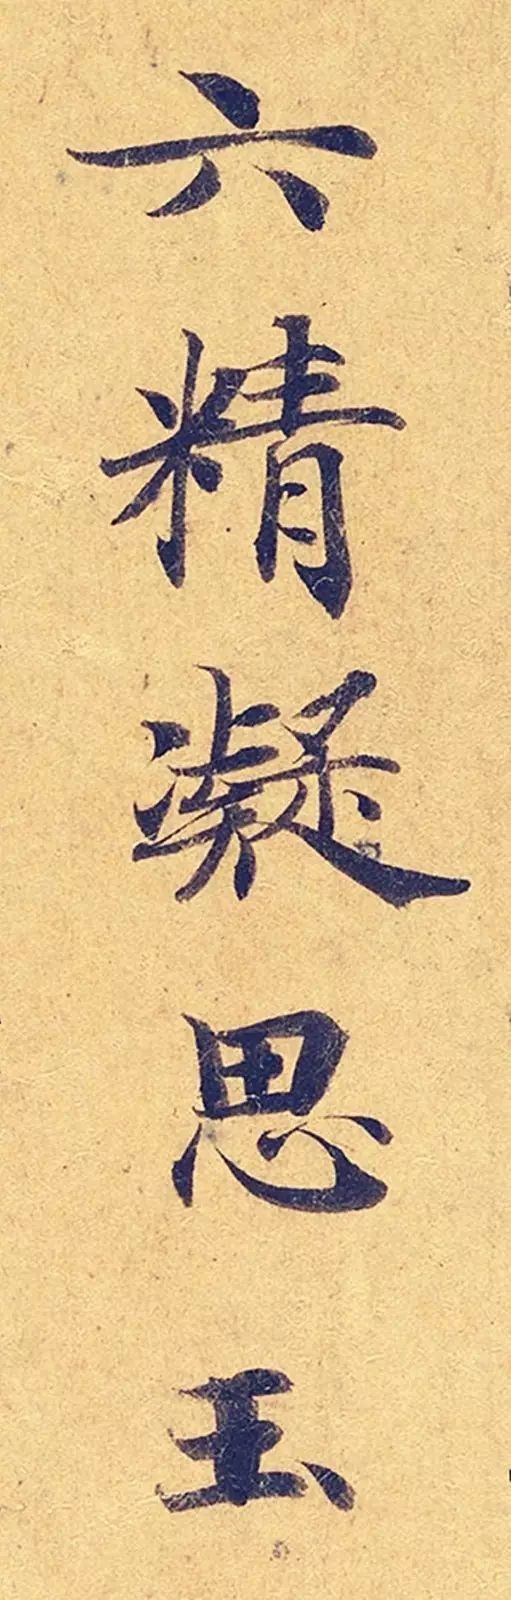 六精凝思玉